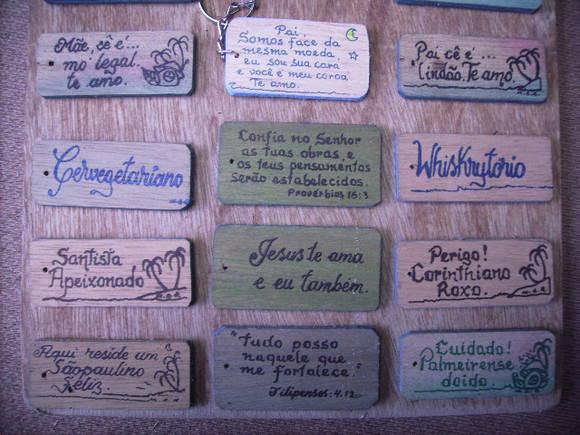 Mãe, cê é...
mó legal.
te amo.
Pai,
Somos face da
mesma moeda
eu sou sua cara
e você é meu coroa
Te amo.
Pai cê é...
Lindão. Te amo.
Cervegetariano
Confia no Senhor
as tuas obras, e
os teus pensamentos
serão estabelecidos.
Provérbios 16:3
Whiskrytório
Santista
Apeixonado
Jesus te ama
e eu também.
Perigo!
Corinthiano
Roxo.
Aqui reside um
Sãopaulino
Feliz.
"Tudo posso
naquele que
me fortalece."
Filipenses: 4.13
Cuidado!
Palmeirense
doido...